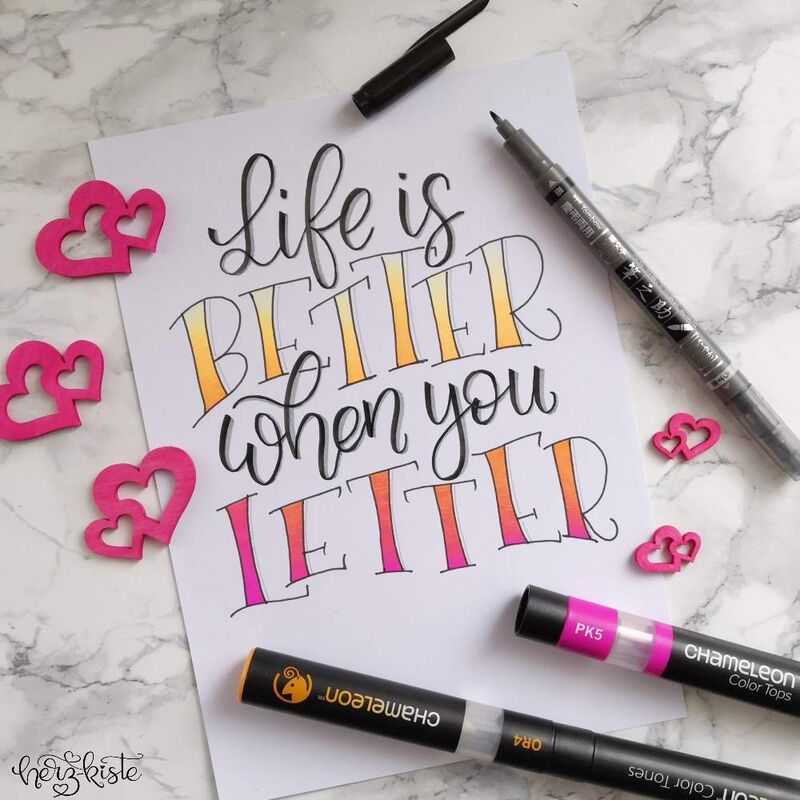 Life is
BETTER
when you
LETTER
Tombow
筆之助
PK5
CHAMELEON
Color Tops
CHAMELEON™
OR4
Color Tones
herz-kiste